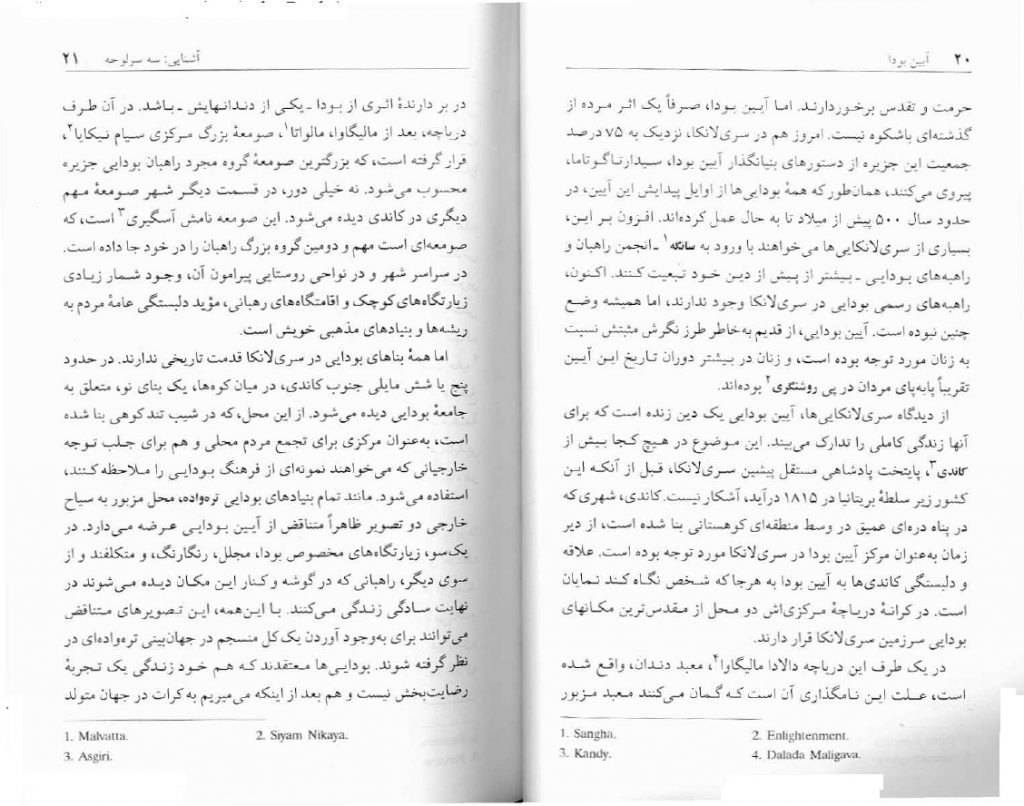 ۲۰ آیین بودا
حرمت و تقدس برخوردارند. اما آیین بودا، صرفاً یک اثر مرده از
گذشته‌ای باشکوه نیست. امروز هم در سری‌لانکا، نزدیک به ۷۵ درصد
جمعیت این جزیره از دستورهای بنیانگذار آیین بودا، سیدارتاگوتاما،
پیروی می‌کنند، همان‌طور که همهٔ بودایی‌ها از اوایل پیدایش این آیین، در
حدود سال ۵۰۰ پیش از میلاد تا به حال عمل کرده‌اند. افزون بر این،
بسیاری از سری‌لانکایی‌ها می‌خواهند با ورود به سانگه۱ ـ انجمن راهبان و
راهبه‌های بودایی ـ بیشتر از پیش از دین خود تبعیت کنند. اکنون،
راهبه‌های رسمی بودایی در سری‌لانکا وجود ندارند، اما همیشه وضع
چنین نبوده است. آیین بودایی، از قدیم به‌خاطر طرز نگرش مثبتش نسبت
به زنان مورد توجه بوده است، و زنان در بیشتر دوران تاریخ این آیین
تقریباً پابه‌پای مردان در پی روشنگری۲ بوده‌اند.
از دیدگاه سری‌لانکایی‌ها، آیین بودایی یک دین زنده است که برای
آنها زندگی کاملی را تدارک می‌بیند. این موضوع در هیچ کجا بیش از
کاندی۳، پایتخت پادشاهی مستقل پیشین سری‌لانکا، قبل از آنکه این
کشور زیر سلطهٔ بریتانیا در ۱۸۱۵ درآید، آشکار نیست. کاندی، شهری که
در پناه دره‌ای عمیق در وسط منطقه‌ای کوهستانی بنا شده است، از دیر
زمان به‌عنوان مرکز آیین بودا در سری‌لانکا مورد توجه بوده است. علاقه
و دلبستگی کاندی‌ها به آیین بودا به هرجا که شخص نگاه کند نمایان
است. در کرانهٔ دریاچهٔ مرکزی‌اش دو محل از مقدس‌ترین مکانهای
بودایی سرزمین سری‌لانکا قرار دارند.
در یک طرف این دریاچه دالادا مالیگاوا۴، معبد دندان، واقع شده
است، علت این نامگذاری آن است که گمان می‌کنند معبد مزبور
1. Sangha. 2. Enlightenment.
3. Kandy. 4. Dalada Maligava.
آشنایی: سه سرلوحه ۲۱
در بر دارندهٔ اثری از بودا ـ یکی از دندانهایش ـ باشد. در آن طرف
دریاچه، بعد از مالیگاوا، مالواتا۱، صومعهٔ بزرگ مرکزی سیام نیکایا۲،
قرار گرفته است، که بزرگترین صومعهٔ گروه مجرد راهبان بودایی جزیره
محسوب می‌شود. نه خیلی دور، در قسمت دیگر شهر صومعهٔ مهم
دیگری در کاندی دیده می‌شود. این صومعه نامش آسگیری۳ است، که
صومعه‌ای است مهم و دومین گروه بزرگ راهبان را در خود جا داده است.
در سراسر شهر و در نواحی روستایی پیرامون آن، وجود شمار زیادی
زیارتگاه‌های کوچک و اقامتگاه‌های رهبانی، مؤید دلبستگی عامهٔ مردم به
ریشه‌ها و بنیادهای مذهبی خویش است.
اما همهٔ بناهای بودایی در سری‌لانکا قدمت تاریخی ندارند. در حدود
پنج یا شش مایلی جنوب کاندی، در میان کوه‌ها، یک بنای نو، متعلق به
جامعهٔ بودایی دیده می‌شود. از این محل، که در شیب تند کوهی بنا شده
است، به‌عنوان مرکزی برای تجمع مردم محلی و هم برای جلب توجه
خارجیانی که می‌خواهند نمونه‌ای از فرهنگ بودایی را ملاحظه کنند،
استفاده می‌شود. مانند تمام بنیادهای بودایی تره‌واده، محل مزبور به سیاح
خارجی دو تصویر ظاهراً متناقض از آیین بودایی عرضه می‌دارد. در
یک‌سو، زیارتگاه‌های مخصوص بودا، مجلل، رنگارنگ، و متکلفند و از
سوی دیگر، راهبانی که در گوشه و کنار این مکان دیده می‌شوند در
نهایت سادگی زندگی می‌کنند. با این‌همه، این تصویرهای متناقض
می‌توانند برای به‌وجود آوردن یک کل منسجم در جهان‌بینی تره‌واده‌ای در
نظر گرفته شوند. بودایی‌ها معتقدند که هم خود زندگی یک تجربهٔ
رضایت‌بخش نیست و هم بعد از اینکه می‌میریم به کرات در جهان متولد
1. Malvatta. 2. Siyam Nikaya.
3. Asgiri.